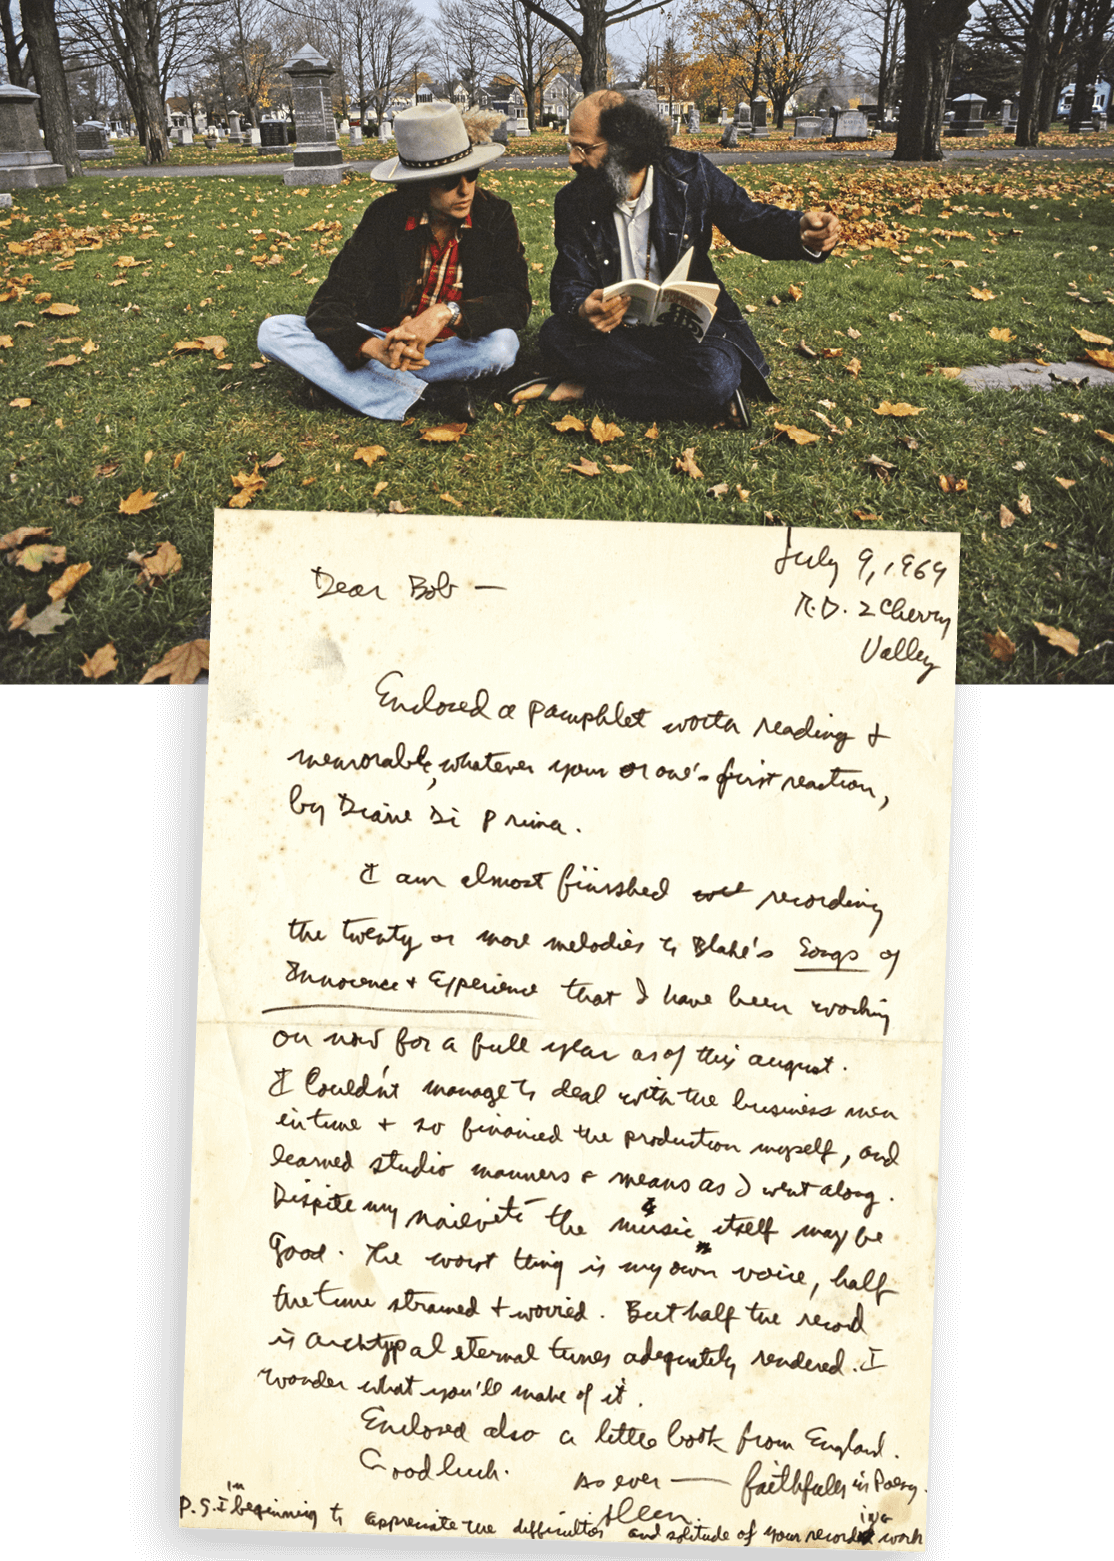 July 9, 1969
Dear Bob —
R.D. 2 Cherry
Valley
Enclosed a pamphlet worth reading &
memorable, whatever your or one's first reaction,
by Diane Di Prima.
I am almost finished recording
the twenty or more melodies to Blake's Songs of
Innocence & Experience that I have been working
on now for a full year as of this august.
I Couldn't manage to deal with the business men
in time & so financed the production myself, and
learned studio manners & means as I went along.
Dispite my naiveté the music itself may be
Good. The worst thing is my own voice, half
the time strained & worried. But half the record
is archtypal eternal tunes adequately rendered. I
wonder what you'll make of it.
Enclosed also a little book from England.
Good luck. As ever — faithfully in Poesy.
Allen
P.S. I'm beginning to appreciate the difficulties and solitude of your recording work